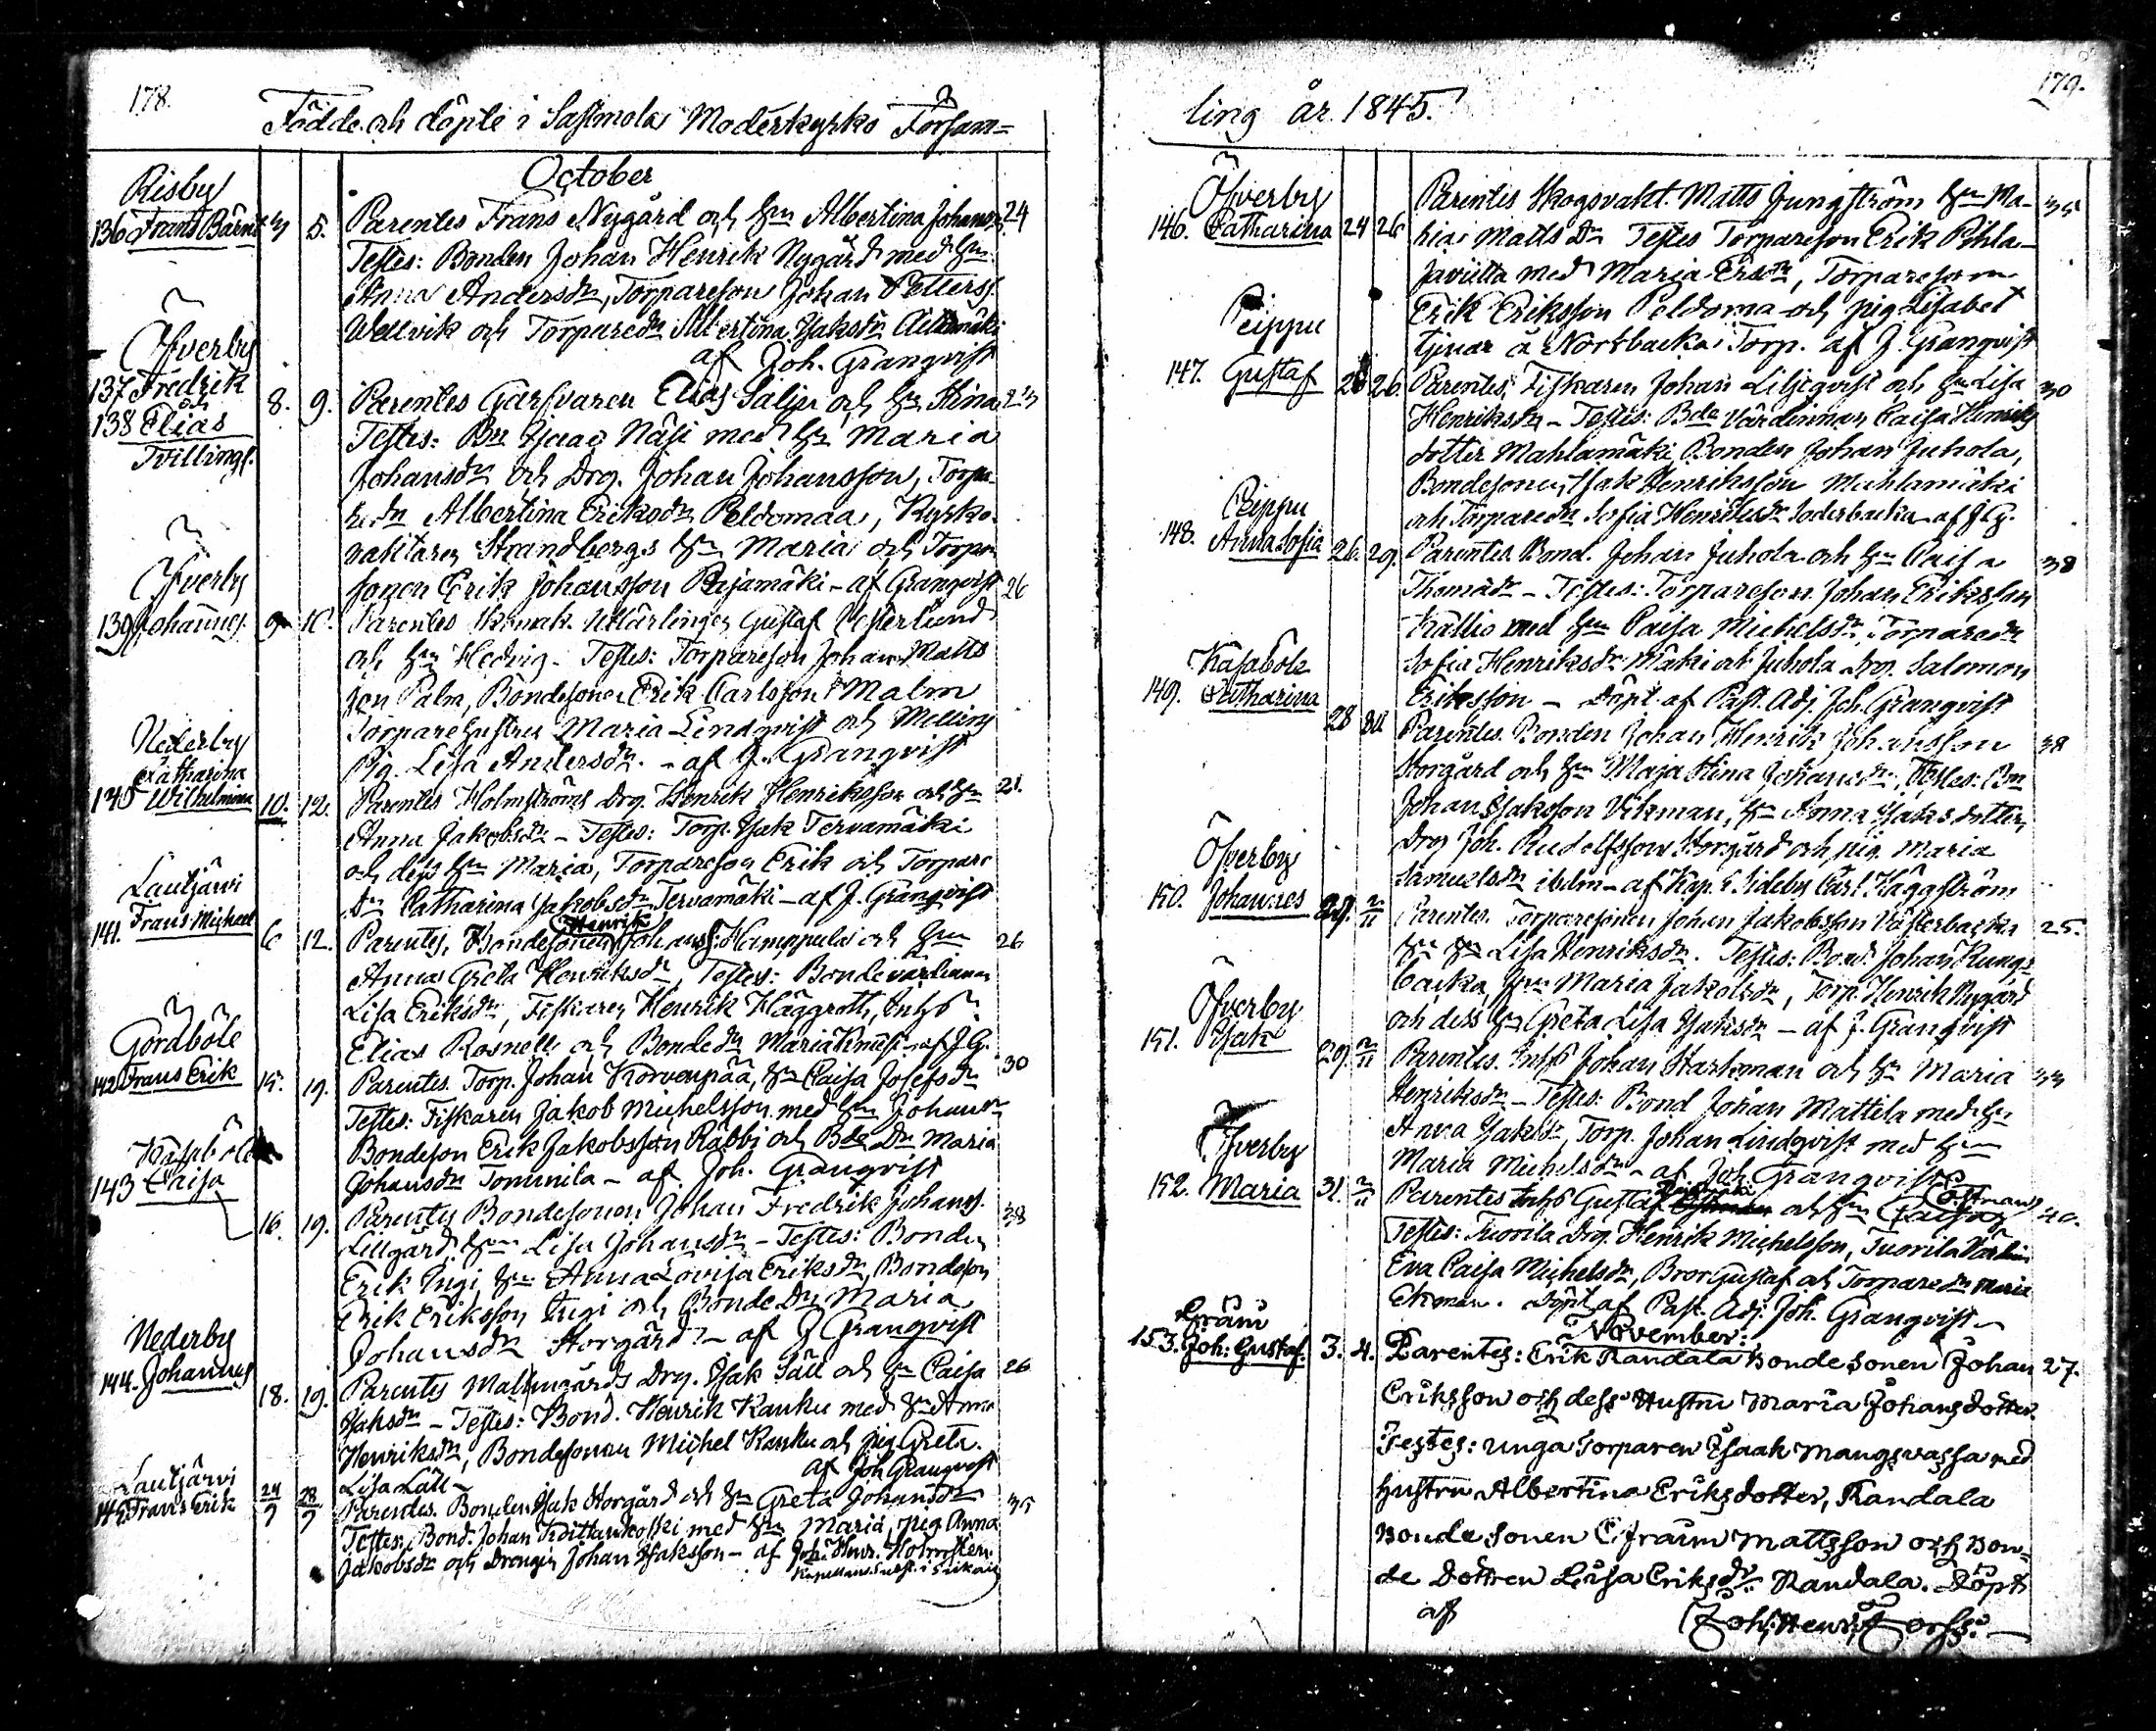 178.
Födde och döpte i Sastmola Moderkyrko Försam=
October
Risby
136 Frans Bärnt 3 5. Parentes Frans Nygård och Hu Albertina Johans 24
Testes: Bonden Johan Henrik Nygård med Hu
Anna Andersdr, Torpareson Johan Petterss.
Wellvik och Torparedr Albertina Isaksdr
af Joh. Granqvist
Öfverby
137 Fredrik
och
138 Elias
Tvillingl.
8. 9. Parentes Garfvaren Elias Salin och Hu Stina 23
Testes: Bn Isaac Näsi med Hu Maria
Johansdr och Drg. Johan Johansson, Torpa
redr Albertina Eriksdr Peldomaa, Kyrko
vaktaren Strandbergs Hu Maria och Torpa
sonen Erik Johansson Reijamäki - af Granqvist
Öfverby
139 Johannes 9 10. Parentes Skomak. Gustaf Vesterlund 26
och Hu Hedvig - Testes: Torpareson Johan Matts
son Palm, Bondesonen Erik Carlsson Malm
Torpare hustrun Maria Lindqvist och
Pig. Lisa Andersdr. - af J. Granqvist
Nederby
Catharina
140 Wilhelmina 10. 12. Parentes Holmströms Drg. Henrik Henriksson och Hu 21.
Anna Jakobsdr - Testes: Torp. Isak Tervamäki
och dess Hu Maria, Torpareson Erik och Torpare
Dr Catharina Jakobsdr Tervamäki - af J. Granqvist
Lautjärvi
141. Frans Michael 6 12. Parentes, Bondesonen Henrik Johanss. Kamppula och Hu 26
Anna Greta Henriksdr, Testes: Bondevärdinnan
Lisa Eriksdr, Fiskaren Henrik Häggroth, Inhs
Elias Rosnell och Bondedr Maria - af J. G.
Gårdböle
142 Frans Erik 15. 19. Parentes. Torp. Johan Korvenpää, Hu Caisa Josefsdr 30
Testes: Fiskaren Jakob Michelsson med Hu Johanna
Bondeson Erik Jakobsson Räbbi och Bde Dr Maria
Johansdr Tommila - af Joh. Granqvist
Kasaböle
143 Caisa
16. 19. Parentes Bondesonen Johan Fredrik Johanss. 38
Lillgård, Hu Lisa Johansdr - Testes: Bonden
Erik Ingi, Hu Anna Lovisa Eriksdr, Bondeson
Erik Eriksson Ingi och Bonde Dr Maria
Johansdr Storgård - af J Granqvist
Nederby
144. Johannes 18. 19. Parentes Malmgårds Drg. Isak Säll och Hu Caisa 26
Isaksdr - Testes: Bond. Henrik Kanku med Hu Anna
Henriksdr, Bondesonen Michel Kanku och pig Greta
Lisa Läll - af Joh Granqvist
Lautjärvi
145 Frans Erik 24/9 28/9 Parentes. Bonden Isak Storgård och Hu Greta Johansdr 35
Testes: Bond. Johan Koittankoski med Hu Maria, pig Anna
Jakobsdr och Drengen Johan Isaksson - af Joh. Henr. Holmsten
Kapellans Subst. i Siikais
179.
ling år 1845.
Öfverby
146. Catharina 24 26 Parentes Skogsvakt. Matts Ljungström Hu Ma- 35
ria Matts Dr Testes Torpareson Erik Pihla-
javiitta med Maria Ersdr, Torpareson
Erik Eriksson Peldoma och pig Lisabet
tjenar å Norrbacka Torp. af J. Granqvist
Peippu
147. Gustaf 26 26. Parentes, Fiskaren Johan Liljeqvist och Hu Lisa 30
Henriksdr - Testes: Bde Värdinnan Caisa Henriks
dotter Mahlamäki Bonden Johan Juhola,
Bondesonen, Isak Henriksson Mahlamäki
och Torparedr Sofia Henriksdr Söderbacka - af J. G.
Peippu
148. Anna Sofia 26. 29. Parentes Bond. Johan Juhola och Hu Caisa 38
Thomasdr - Testes: Torpareson Johan Eriksson
Kallio med Hu Caisa Michelsdr, Torparedr
Sofia Henriksdr Mäki och Juhola Drg. Salomon
Eriksson - Döpt af Past. Adj. Joh. Granqvist
Kasaböle
149. Catharina
28 Parentes. Bonden Johan Henrik Johansson 38
Storgård och Hu Maja Stina Johansdr, Testes: Bn
Johan Isaksson Vikman, Hu Anna Isaks dotter,
Drg Joh. Rudolfsson Storgård och pig. Maria
Samuelsdr ibdm - af Kap. i Sideby Carl Häggström
Öfverby
150. Johannes 29. 2/11 Parentes. Torparesonen Johan Jakobsson Västerbacka 25.
Hu Lisa Henriksdr. Testes: Bond. Johan Kungs
backa, Hu Maria Jakobsdr, Torp. Henrik Nygård
och dess Hu Greta Lisa Isaksdr - af J. Granqvist
Öfverby
151. Isak
29. 2/11 Parentes. Inhs Johan Starkman och Hu Maria 33
Henriksdr - Testes: Bond Johan Mattila med Hu
Anna Isaksdr, Torp. Johan Lindqvist med Hu
Maria Michelsdr - af Joh Granqvist
Öfverby
152. Maria 31. 2/11 Parentes Inhs Gustaf och Hu Caisa Östman 40.
Testes: Tuorila Drg. Henrik Michelsson, Tuorila Värdin
Eva Caisa Michelsdr, Bror Gustaf och Torparedr Maria
Ekman. Döpt af Past. Adj. Joh. Granqvist -
November:
Gräm
153. Joh: Gustaf. 3. 4. Parentes: Erik Randala Bonde sonen Johan 27.
Eriksson och dess Hustru Maria Johans dotter.
Testes: unga Torparen Isaak Mangsvassa med
hustru Albertina Eriksdotter, Randala
Bonde sonen Efraim Mattsson och Bon-
de Dottren Lisa Eriksdr. Randala. Döpt
af Joh: Henr: Forss. -